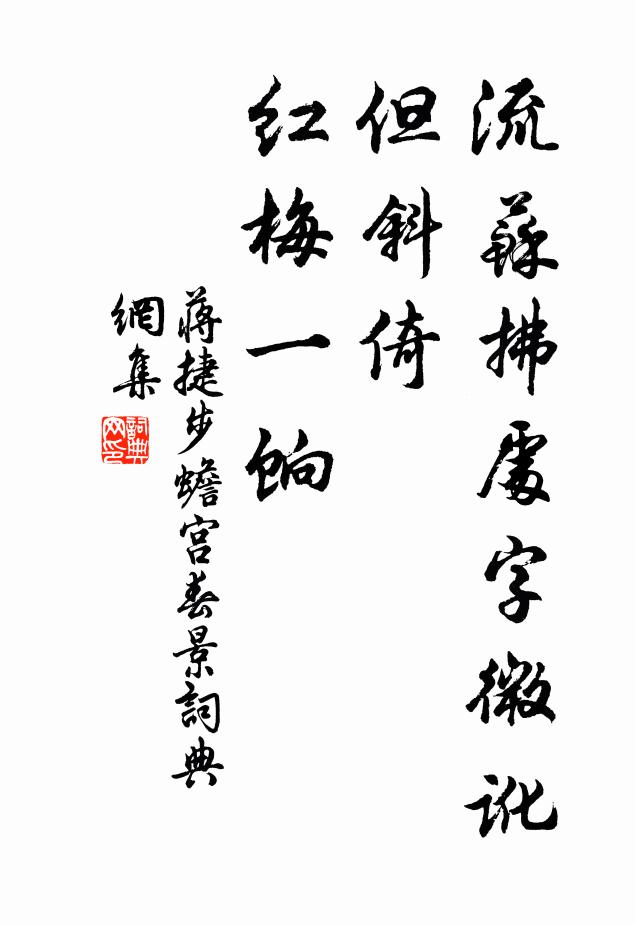 流蘇拂處字微訛
但斜倚
紅梅一餉
蔣捷步蟾宮春景詞典
網集
詞典網印